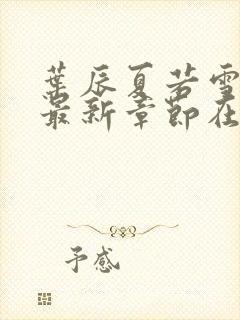 葉辰夏若雪
最新章節在
予感